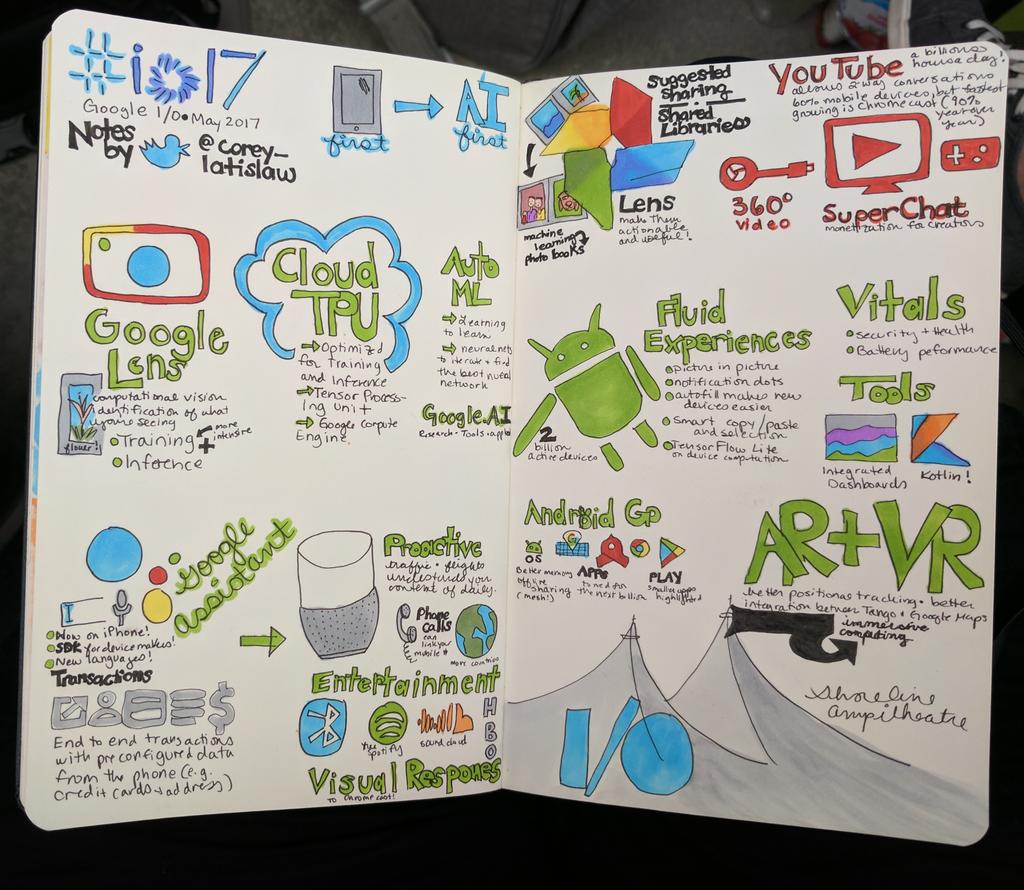 #io17
Google I/O • May 2017
Notes
by
@corey_
latislaw
first
AI
first
Google
Lens
computational vision
identification of what
you're seeing
flower!
• Training
more
intensive
+
• Inference
Cloud
TPU
→ Optimized
for Training
and Inference
→ Tensor Process-
ing unit
→ Google Compute
Engine
Auto
ML
→ Learning
to learn
→ neural nets
to iterate + find
the best nueal
network
Google.AI
Research • Tools • appl
Google
assistant
I
• Now on iPhone!
• SDK for device makers!
• New languages!
Transactions
$
End to end transactions
with preconfigured data
from the phone (e.g.
credit cards + address)
Proactive
traffic • flights
understands your
context of daily.
Phone
calls
can
link your
mobile #
more countries
Entertainment
free
spotify
sound cloud
HBO
Visual Respones
to chromecast!
Suggested
sharing
shared
Libraries
Lens
make them
actionable
and useful!
machine
learning
photo books
YouTube
a billion
hours a day!
allows 2 way conversations
60% mobile devices, but fastest
growing is chromecast (90%
year over
year)
360°
video
SuperChat
monetization for creators
2
billion
active devices
Fluid
Experiences
• picture in picture
• notification dots
• autofill makes new
devices easier
• Smart copy/paste
and selection
• TensorFlow Lite
on device computation
Vitals
• security + Health
• Battery peformance
Tools
Integrated
Dashboards
Kotlin!
Android Go
OS
Better memory
offline
sharing
(mesh!)
APPS
tuned for
the next billion
PLAY
smaller apps
highlighted
AR+VR
better positional tracking • better
integration between Tango + Google Maps
immersive
computing
Shoreline
Ampitheatre
I/O